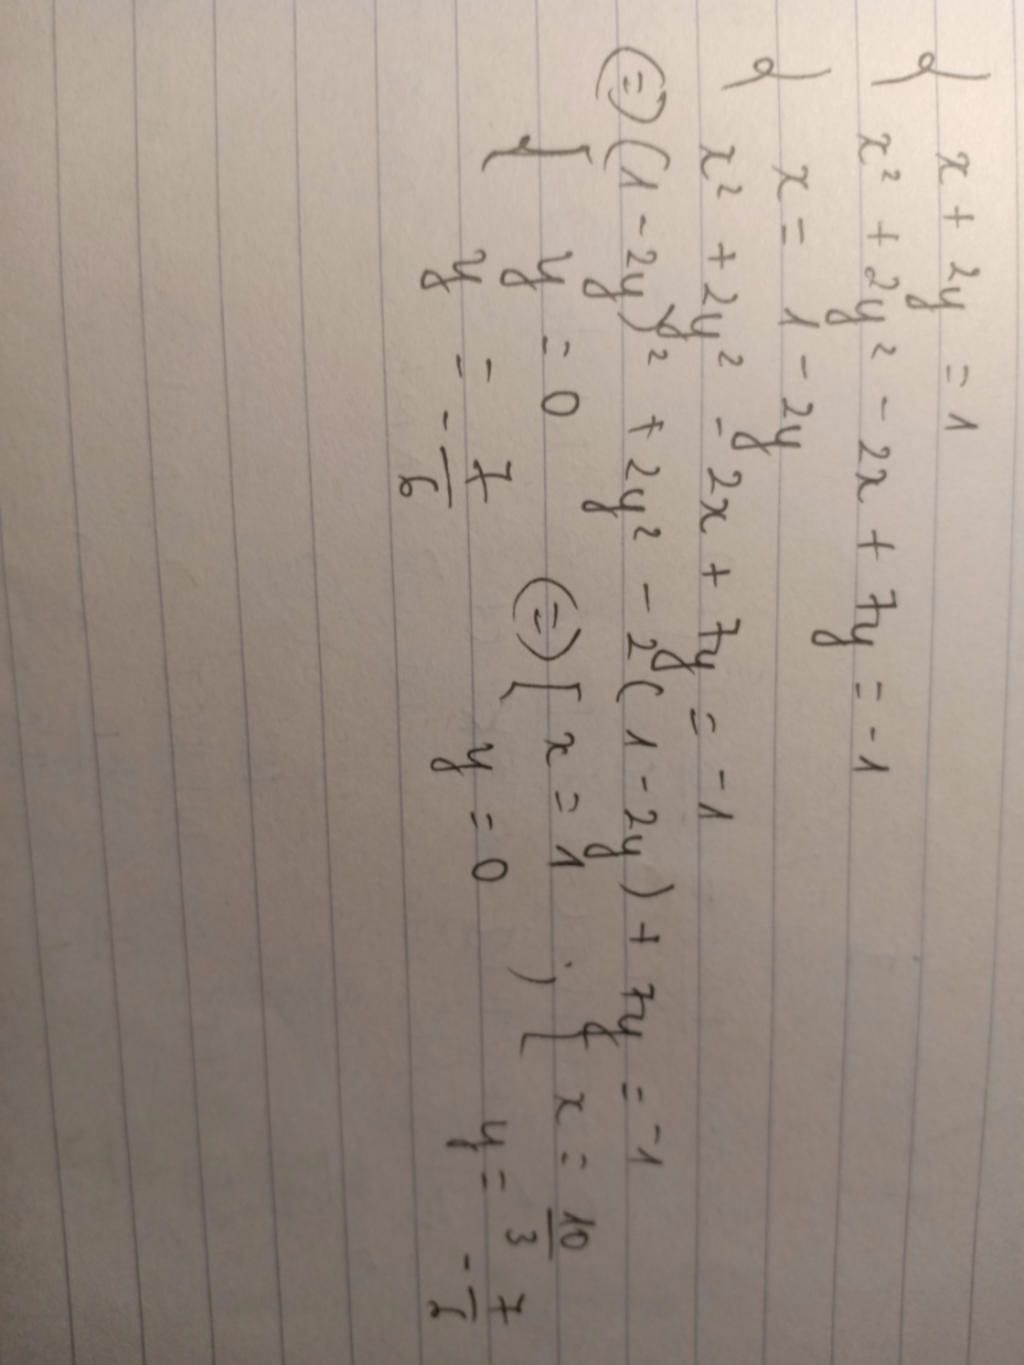 { x + 2y = 1
x² + 2y² - 2x + 7y = -1
{ x = 1 - 2y
x² + 2y² - 2x + 7y = -1
(=) (1 - 2y)² + 2y² - 2(1 - 2y) + 7y = -1
[ y = 0 (=) [ x = 1 ; [ x = 10/3
y = -7/6 y = 0 y = -7/6